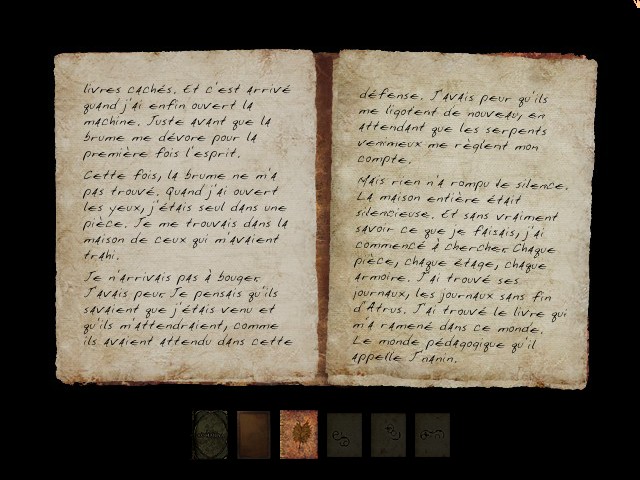 livres cachés. Et c'est arrivé
quand j'ai enfin ouvert la
machine. Juste avant que la
brume me dévore pour la
première fois l'esprit.
Cette fois, la brume ne m'a
pas trouvé. Quand j'ai ouvert
les yeux, j'étais seul dans une
pièce. Je me trouvais dans la
maison de ceux qui m'avaient
trahi.
Je n'arrivais pas à bouger.
J'avais peur. Je pensais qu'ils
savaient que j'étais venu et
qu'ils m'attendraient, comme
ils avaient attendu dans cette
défense. J'avais peur qu'ils
me ligotent de nouveau, en
attendant que les serpents
venimeux me règlent mon
compte.
Mais rien n'a rompu le silence.
La maison entière était
silencieuse. Et sans vraiment
savoir ce que je faisais, j'ai
commencé à chercher. Chaque
pièce, chaque étage, chaque
armoire. J'ai trouvé ses
journaux, les journaux sans fin
d'Atrus. J'ai trouvé le livre qui
m'a ramené dans ce monde.
Le monde pédagogique qu'il
appelle J'nanin.